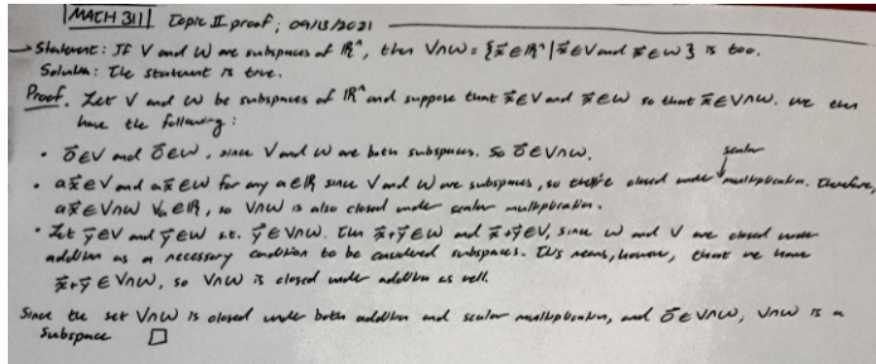 MATH 311 Topic II proof; 09/13/2021
→ Statement: If V and W are subspaces of ℝⁿ, then V∩W = {x⃗∈ℝⁿ | x⃗∈V and x⃗∈W} is too.
Solution: The statement is true.
Proof. Let V and W be subspaces of ℝⁿ and suppose that x⃗∈V and x⃗∈W so that x⃗∈V∩W. We then
have the following:
• 0⃗∈V and 0⃗∈W, since V and W are both subspaces. So 0⃗∈V∩W.
scalar
• ax⃗∈V and ax⃗∈W for any a∈ℝ since V and W are subspaces, so they're closed under multiplication. Therefore,
ax⃗∈V∩W ∀a∈ℝ, so V∩W is also closed under scalar multiplication.
• Let y⃗∈V and y⃗∈W s.t. y⃗∈V∩W. Then x⃗+y⃗∈W and x⃗+y⃗∈V, since W and V are closed under
addition as a necessary condition to be considered subspaces. This means, however, that we have
x⃗+y⃗∈V∩W, so V∩W is closed under addition as well.
Since the set V∩W is closed under both addition and scalar multiplication, and 0⃗∈V∩W, V∩W is a
subspace □